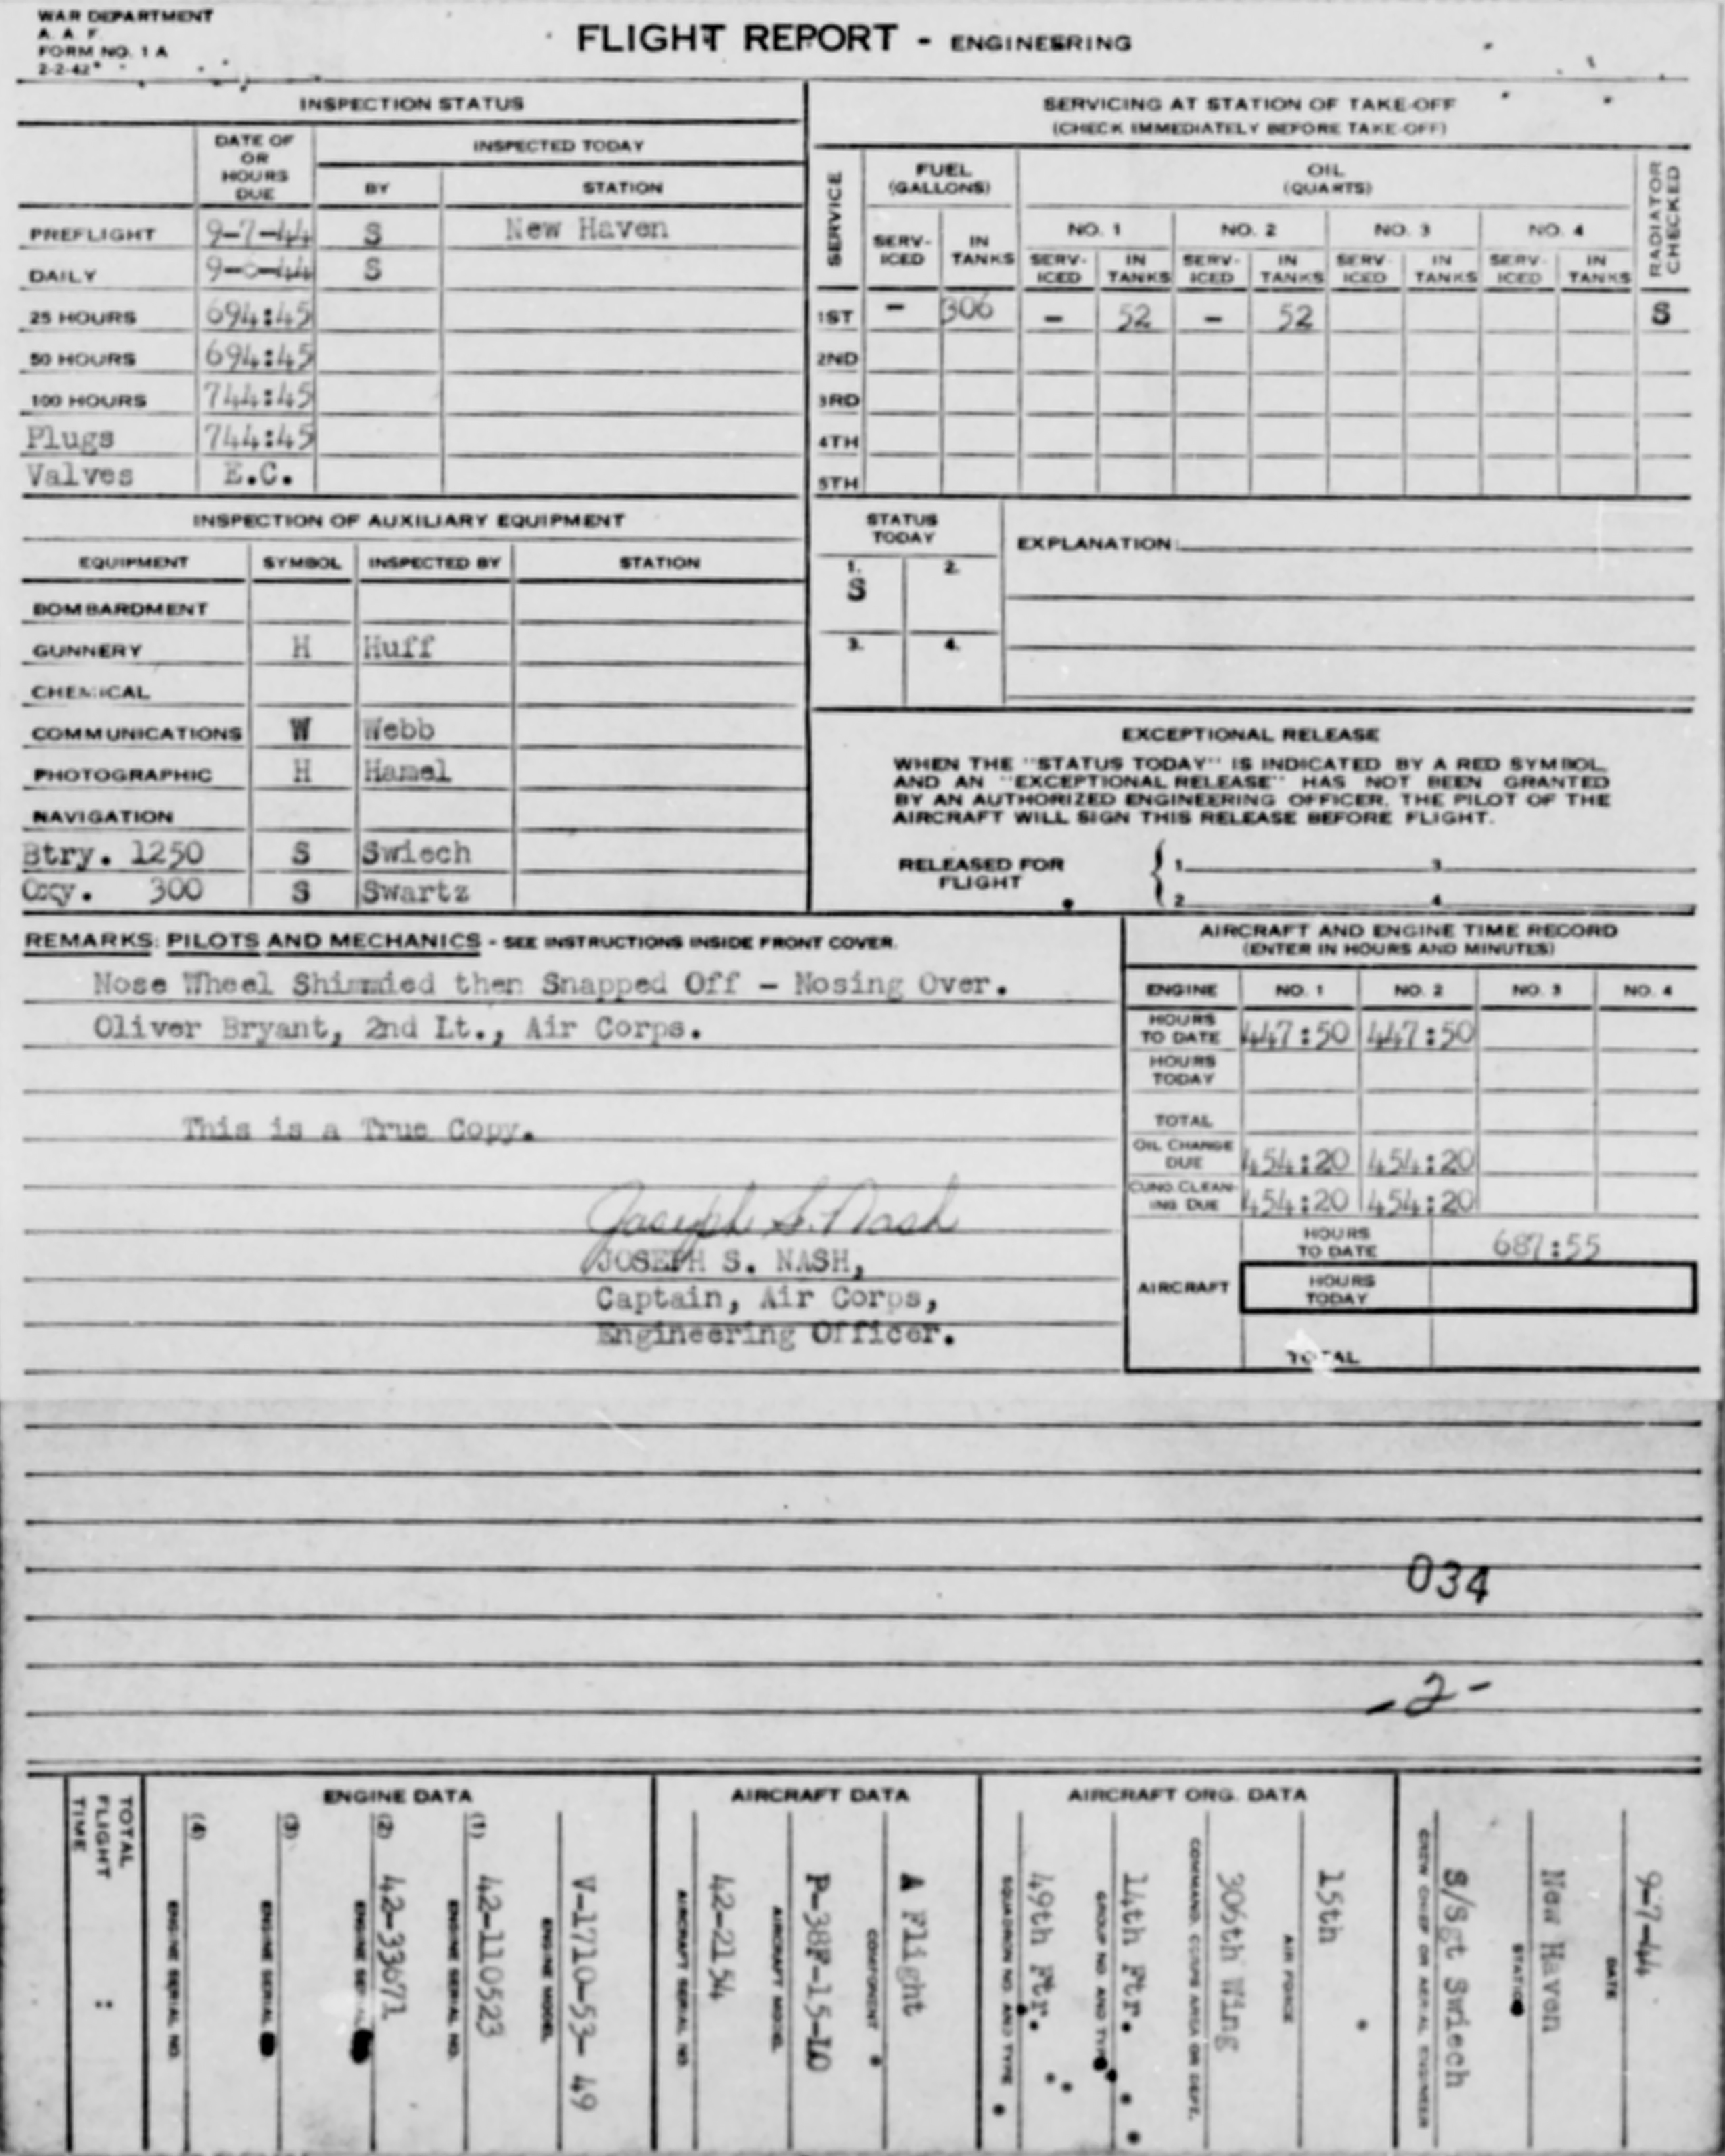 WAR DEPARTMENT
A. A. F.
FORM NO. 1 A
2-2-42
FLIGHT REPORT - ENGINEERING
INSPECTION STATUS
DATE OF OR HOURS DUE
INSPECTED TODAY
BY STATION
PREFLIGHT 9-7-44 S New Haven
DAILY S
25 HOURS 694:45
50 HOURS 694:45
100 HOURS 744:45
Plugs 744:45
Valves E.C.
SERVICING AT STATION OF TAKE-OFF
(CHECK IMMEDIATELY BEFORE TAKE-OFF)
SERVICE
FUEL (GALLONS)
OIL (QUARTS)
RADIATOR CHECKED
NO. 1 NO. 2 NO. 3 NO. 4
SERV-ICED IN TANKS SERV-ICED IN TANKS SERV-ICED IN TANKS SERV-ICED IN TANKS SERV-ICED IN TANKS
1ST - 306 - 52 - 52 S
2ND
3RD
4TH
5TH
INSPECTION OF AUXILIARY EQUIPMENT
EQUIPMENT SYMBOL INSPECTED BY STATION
BOMBARDMENT
GUNNERY H Huff
CHEMICAL
COMMUNICATIONS W Webb
PHOTOGRAPHIC H Hamel
NAVIGATION
Btry. 1250 S Swiech
Oxy. 300 S Swartz
STATUS TODAY
1. S 2.
3. 4.
EXPLANATION:
EXCEPTIONAL RELEASE
WHEN THE "STATUS TODAY" IS INDICATED BY A RED SYMBOL
AND AN "EXCEPTIONAL RELEASE" HAS NOT BEEN GRANTED
BY AN AUTHORIZED ENGINEERING OFFICER, THE PILOT OF THE
AIRCRAFT WILL SIGN THIS RELEASE BEFORE FLIGHT.
RELEASED FOR FLIGHT
1 3
2 4
REMARKS: PILOTS AND MECHANICS - SEE INSTRUCTIONS INSIDE FRONT COVER.
Nose Wheel Shimmied then Snapped Off - Nosing Over.
Oliver Bryant, 2nd Lt., Air Corps.
This is a True Copy.
Joseph S. Nash
JOSEPH S. NASH,
Captain, Air Corps,
Engineering Officer.
AIRCRAFT AND ENGINE TIME RECORD
(ENTER IN HOURS AND MINUTES)
ENGINE NO. 1 NO. 2 NO. 3 NO. 4
HOURS TO DATE 447:50 447:50
HOURS TODAY
TOTAL
OIL CHANGE DUE 454:20 454:20
CUNO. CLEAN-ING DUE 454:20 454:20
AIRCRAFT
HOURS TO DATE 687:55
HOURS TODAY
TOTAL
034
-2-
9-7-44
DATE
New Haven
STATION
S/Sgt Swiech
CREW CHIEF OR AERIAL ENGINEER
AIRCRAFT ORG. DATA
15th
AIR FORCE
306th Wing
COMMAND, CORPS AREA OR DEPT.
14th Ftr.
GROUP NO. AND TYPE
49th Ftr.
SQUADRON NO. AND TYPE
AIRCRAFT DATA
A Flight
COMPONENT
P-38F-15-LO
AIRCRAFT MODEL
42-2154
AIRCRAFT SERIAL NO.
ENGINE DATA
V-1710-53- 49
ENGINE MODEL
(1) 42-110523
ENGINE SERIAL NO.
(2) 42-33671
ENGINE SERIAL
(3)
ENGINE SERIAL
(4)
ENGINE SERIAL NO.
TOTAL FLIGHT TIME :